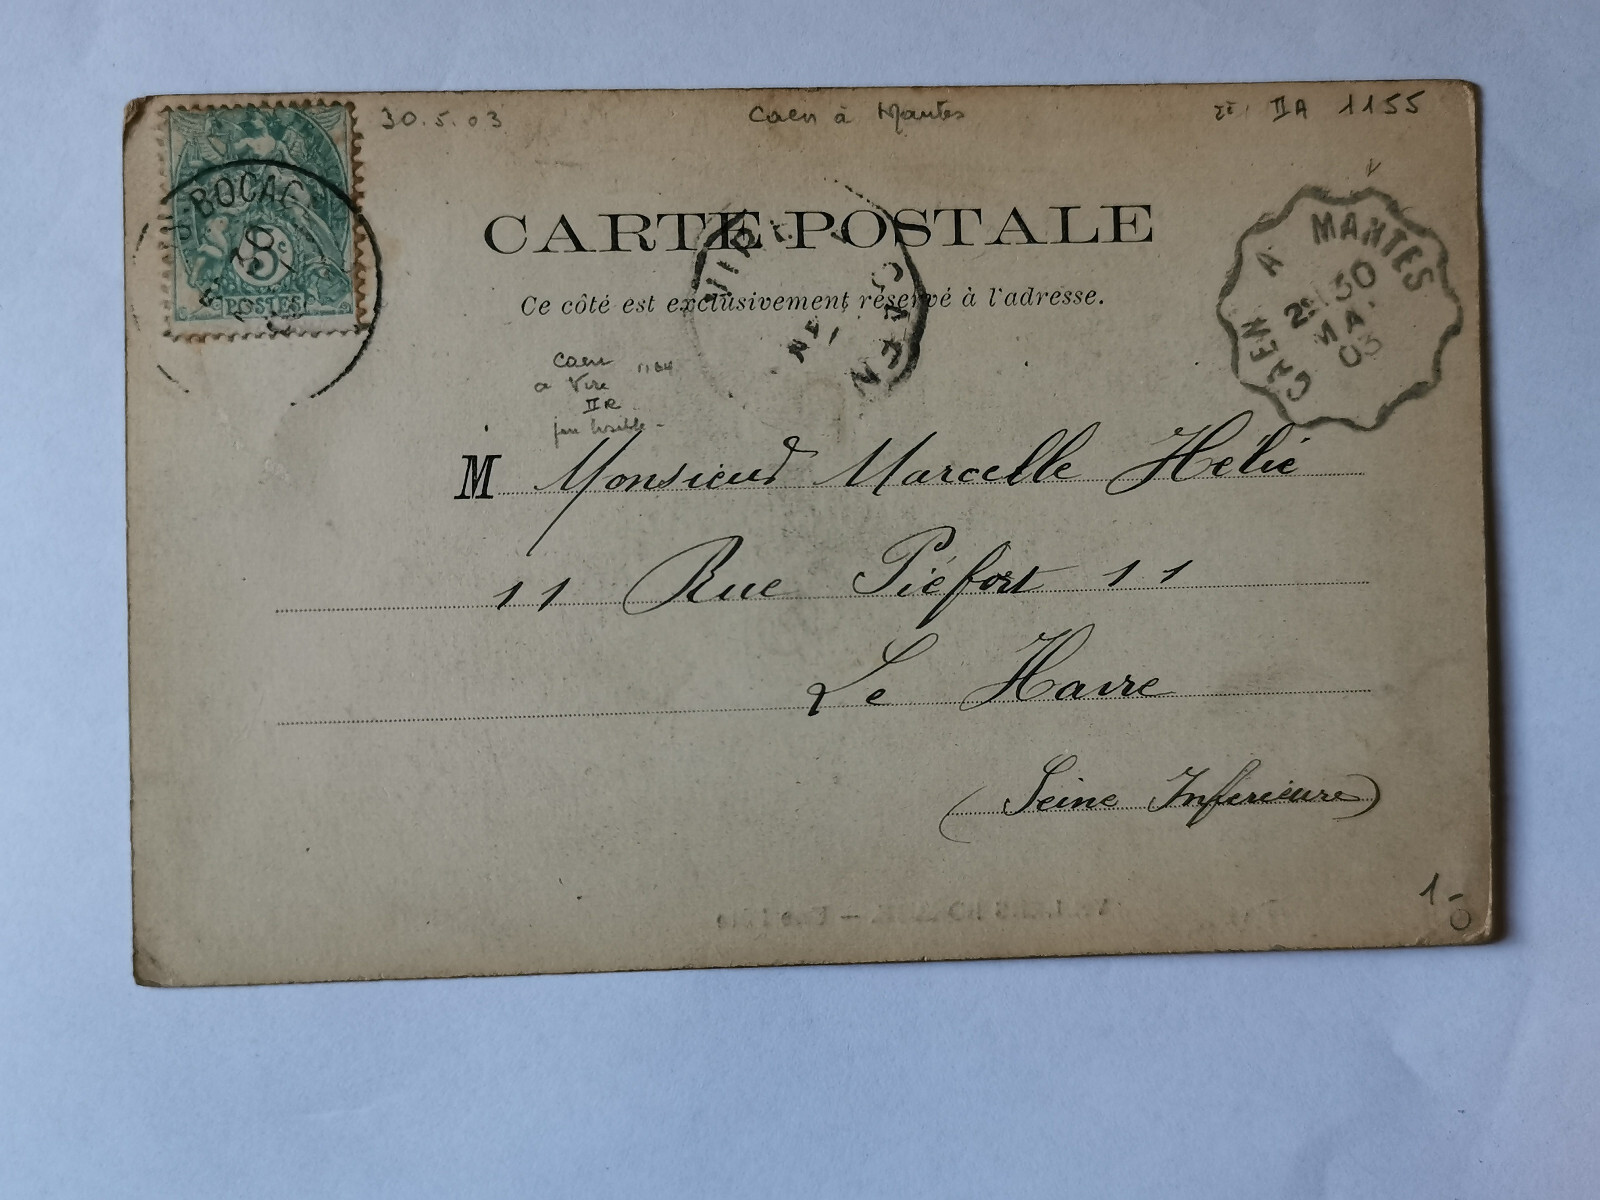 30.5.03
Caen à Mantes
IIA 1155
BOCAG
5c
POSTES
CARTE POSTALE
Ce côté est exclusivement réservé à l'adresse.
VIR
CAEN
CAEN A MANTES
2E 30
MAI
03
Caen 1164
a Vire
IIR
peu lisible -
M Monsieur Marcelle Hélie
11 Rue Piéfort 11
Le Havre
(Seine Inférieure)
1-